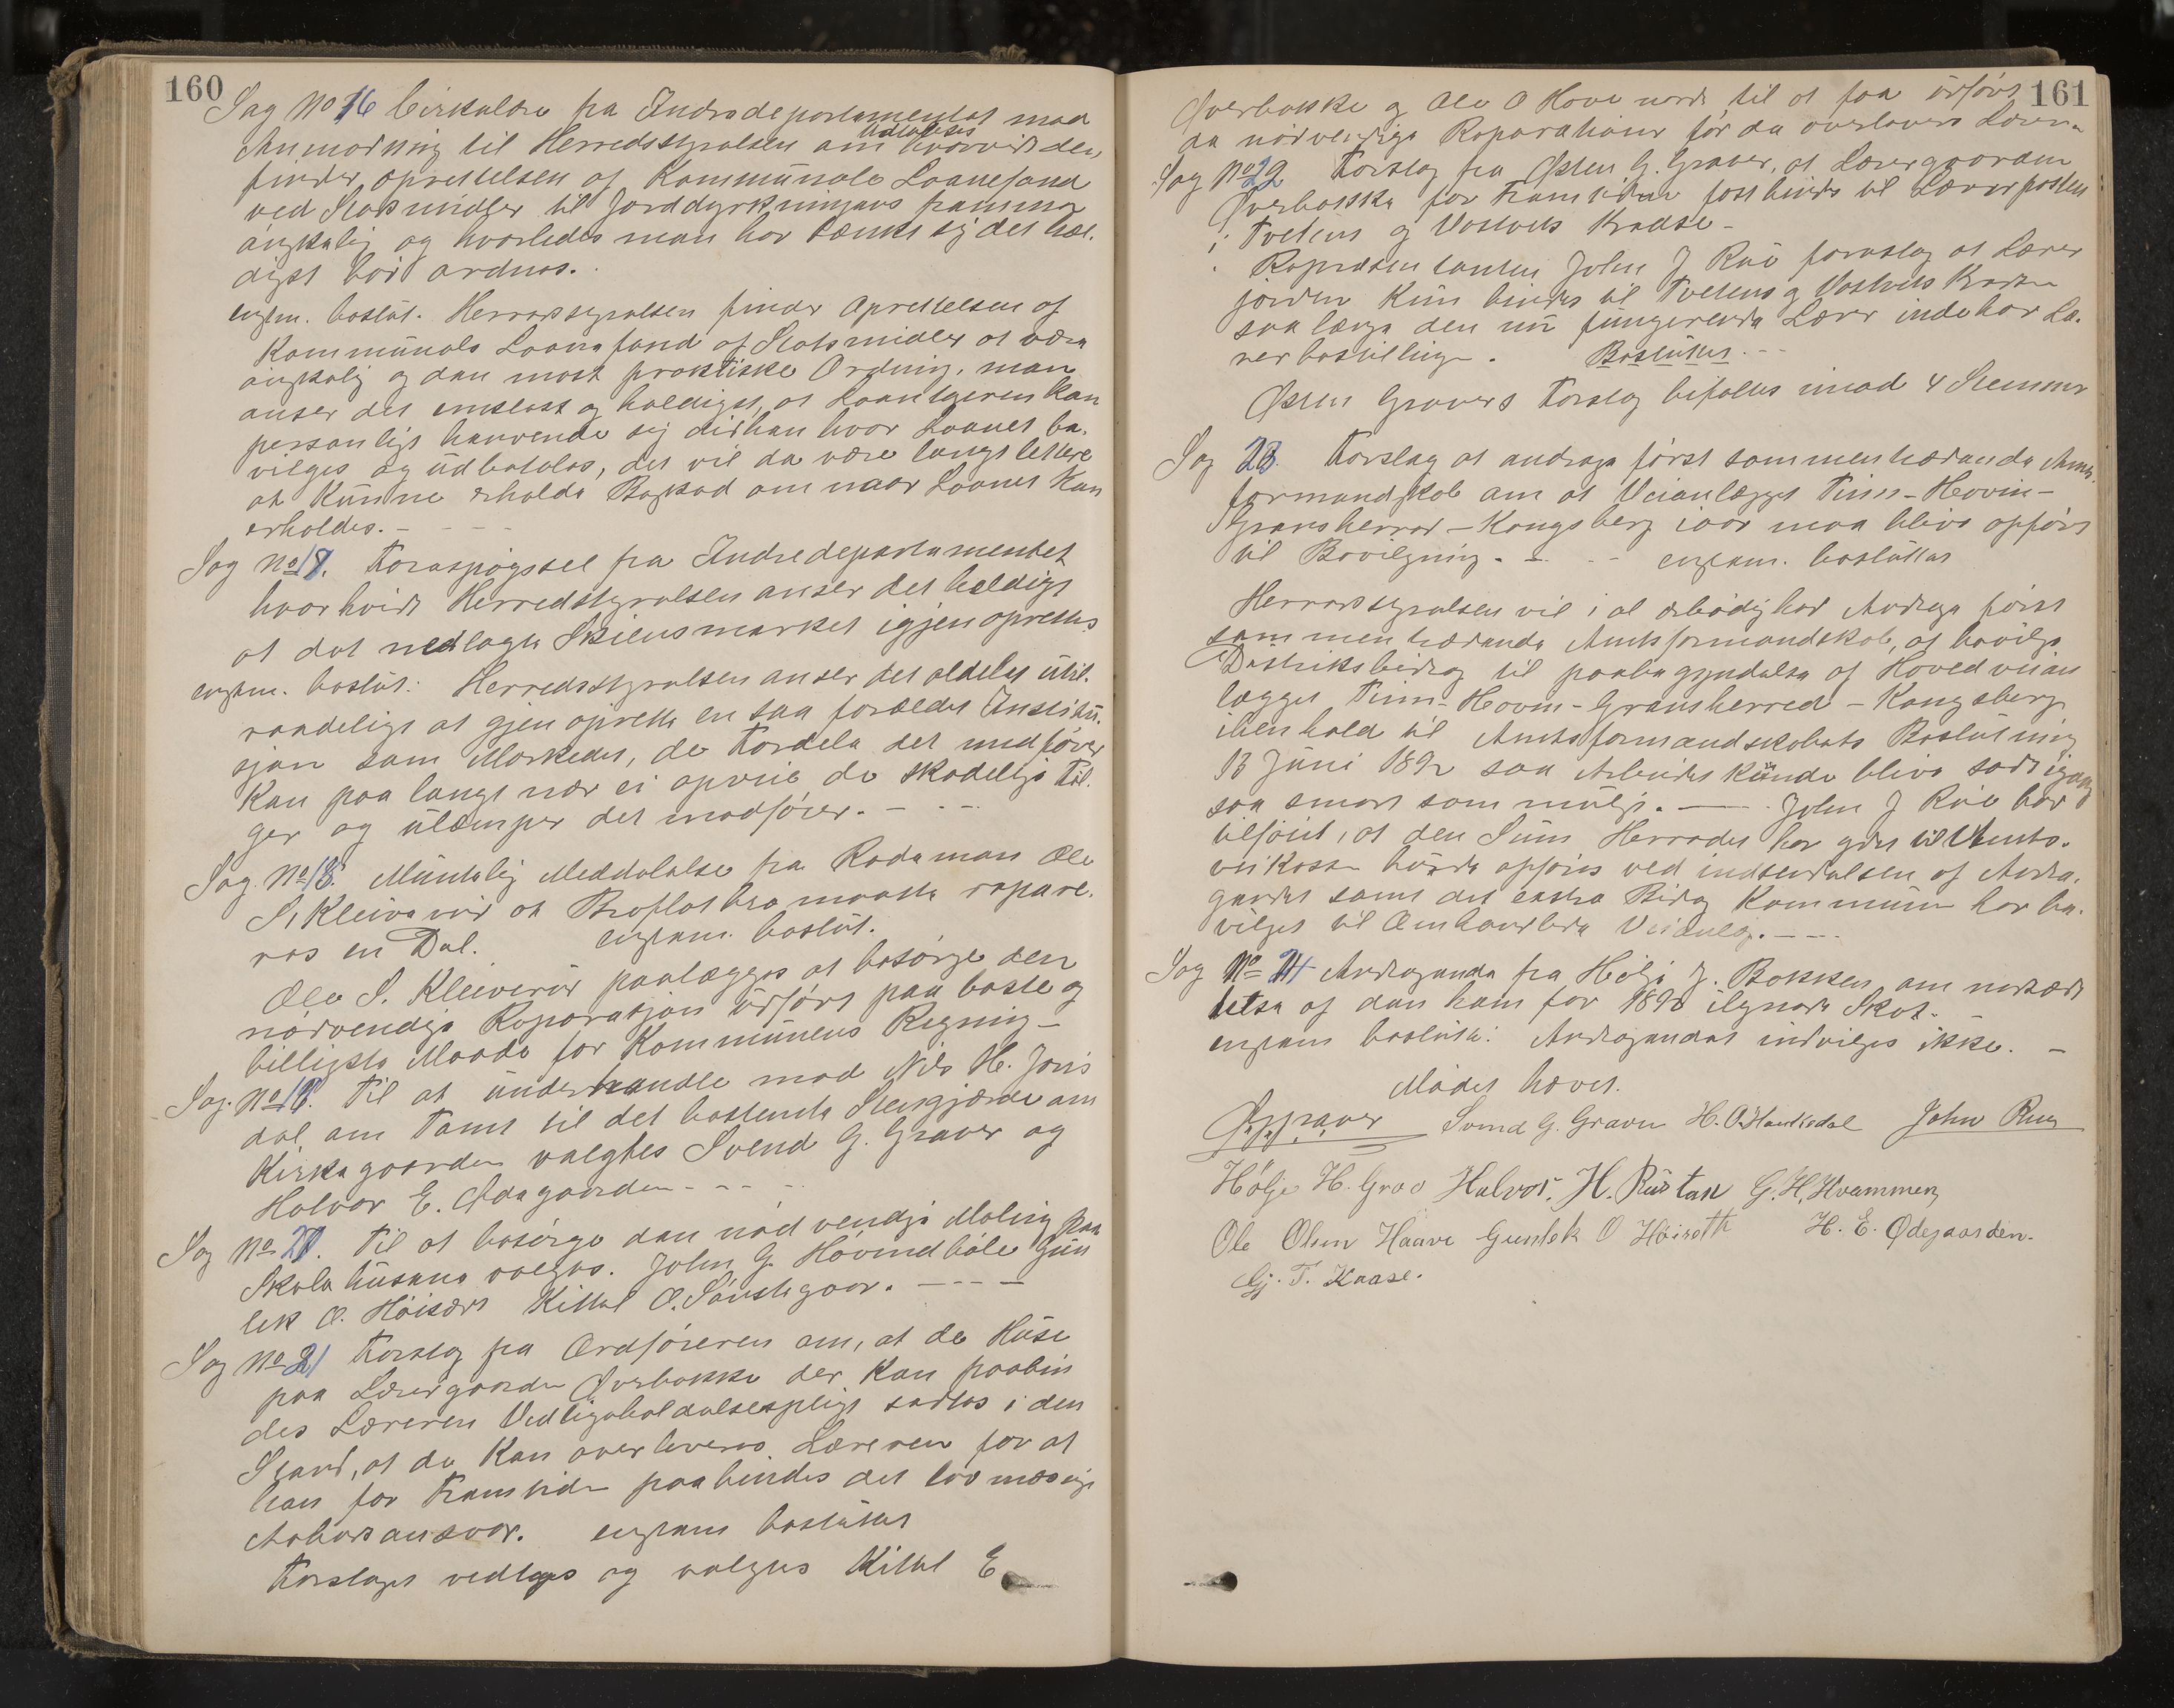 160
Sag No 16 Cirkulære fra Indredepartementet med
Anmodning til Herredsstyrelsen om Udtalelses hvorvidt den
finder oprettelsen af Kommunale Laanefond
ved Statsmidler til Jorddyrkningens fremme
ønskelig og hvorledes man har tænkt sig det hel-
digst bør ordnes.
enstm. beslut. Herredsstyrelsen finder Oprettelsen af
Kommunale Laanefond af Statsmidler at være
ønskelig og den mest praktiske Ordning, man
anser det enclest og heldigst, at Laantageren kan
personligt henvende sig did han hvor Laanet be-
vilges og udbetales, det vil da være langt lettere
at kunne erholde Beskad om naar Laanet Kan
erholdes. -
Sag No 17. Forespøgssel fra Indredepartementet
hvorhvidt Herredstyrelsen anser det heldigt
at det nedlagte Skiensmarket igjen oprettes
enstm. beslut: Herredsstyrelsen anser det aldeles util-
raadeligt at gjenoprette en saa forældet Institu-
sjon som Markedet, de Fordele det medfører
Kan paa langt nær ei opveie de skadelige Føl-
ger og ulæmper det medfører. -
Sag No 18. Mundtlig Meddelelse fra Rodeman Ole
S. Kleiverud at Broflotbro maatte repare-
res en Del. enstem. beslut.
Ole S. Kleiverud paalægges at besørge den
nødvendige Reparasjon udført paa beste og
billigste Maade for Kommunens Regning -
Sag. No 19. Til at underhandle med Nils H. Jons
dal om Tomt til det bestemte Stengjærde om
Kirkegaarden valgtes Svend G. Graver og
Halvor E. Ødegaarden - - -
Sag No 20. Til at besørge den nødvendige Maling paa
Skolehusene valgtes. John G. Høvindbøle Gun
lek O. Høisæt Kittel O. Sønstegaar. -
Sag No 21 Forslag fra Ordføreren om, at de Huse
paa Lærergaarden Øverbakke der kan paabin
des Læreren Vedligeholdelsespligt sættes i den
Stand, at de Kan overleveres Læreren for at
han for Framtiden paabindes det lovmæssige
Aabodsansvar. enstem besluttet
Forslaget vedtages og valgtes Kittel E
161
Øverbakke og Ole O Hove nordr til at faa udført
de nødvendige Reparationer før de overleveres Læreren
Sag No 22 Forslag fra Østen G. Graver, at Lærergaarden
Øverbakke for Framtiden fastbindes til Lærerposten
i Tveitens og Vostveits Kredse -
Repræsentanten John J Rue foreslog at Lærer
jorden Kun bindes til Tveitens og Vostveits Kredse
saa længe den nu fungerende Lærer indehar Læ-
rerbestillinge. Besluttet. -
Østen Gravers Forslag bifaltes imod 4 Stemmer
Sag 23. Forslag at andrage først sammentrædende Amts-
formandskab om at Veianlægget Tinn-Hovin-
Gransherred-Kongsberg iaar maa blive opført
til Bevilgning. - enstem. besluttes
Herredsstyrelsen vil i al ærbødighed Andrage først
sammentrædende Amtsformandskab, at bevilge
Distriktsbidrag til paabegyndelse af Hovedveian
lægget Tinn-Hovin-Gransherred-Kongsberg
ihenhold til Amtsformandskabets Beslutning
13 Juni 1892 saa Arbeidet kunde blive sadt igang
saa snart som muligt. - John J Rue har
tilføiet, at den Sum Herredet har ydet til Amts-
veikassen burde opføres ved indsendelsen af Andra-
gendet samt det extra Bidrag Kommunen har be-
vilget til Omhandlede Veianlæg. -
Sag No 24 Andragende fra Hølje J. Bakken om nedsæt-
telse af den ham for 1893 ilignede Skat.
enstem beslutte: Andragendet indvilges ikke. -
Mødet hævet.
Ø.G. Graver Svend G. Graver H. O. Haukedal John Rue
Hølje H. Grov Halvor. H. Rustan G. H. Kvammen,
Ole Olsen Haave Gunlek O Høisæth H. E. Ødegaarden.
Gj. T. Kaase.